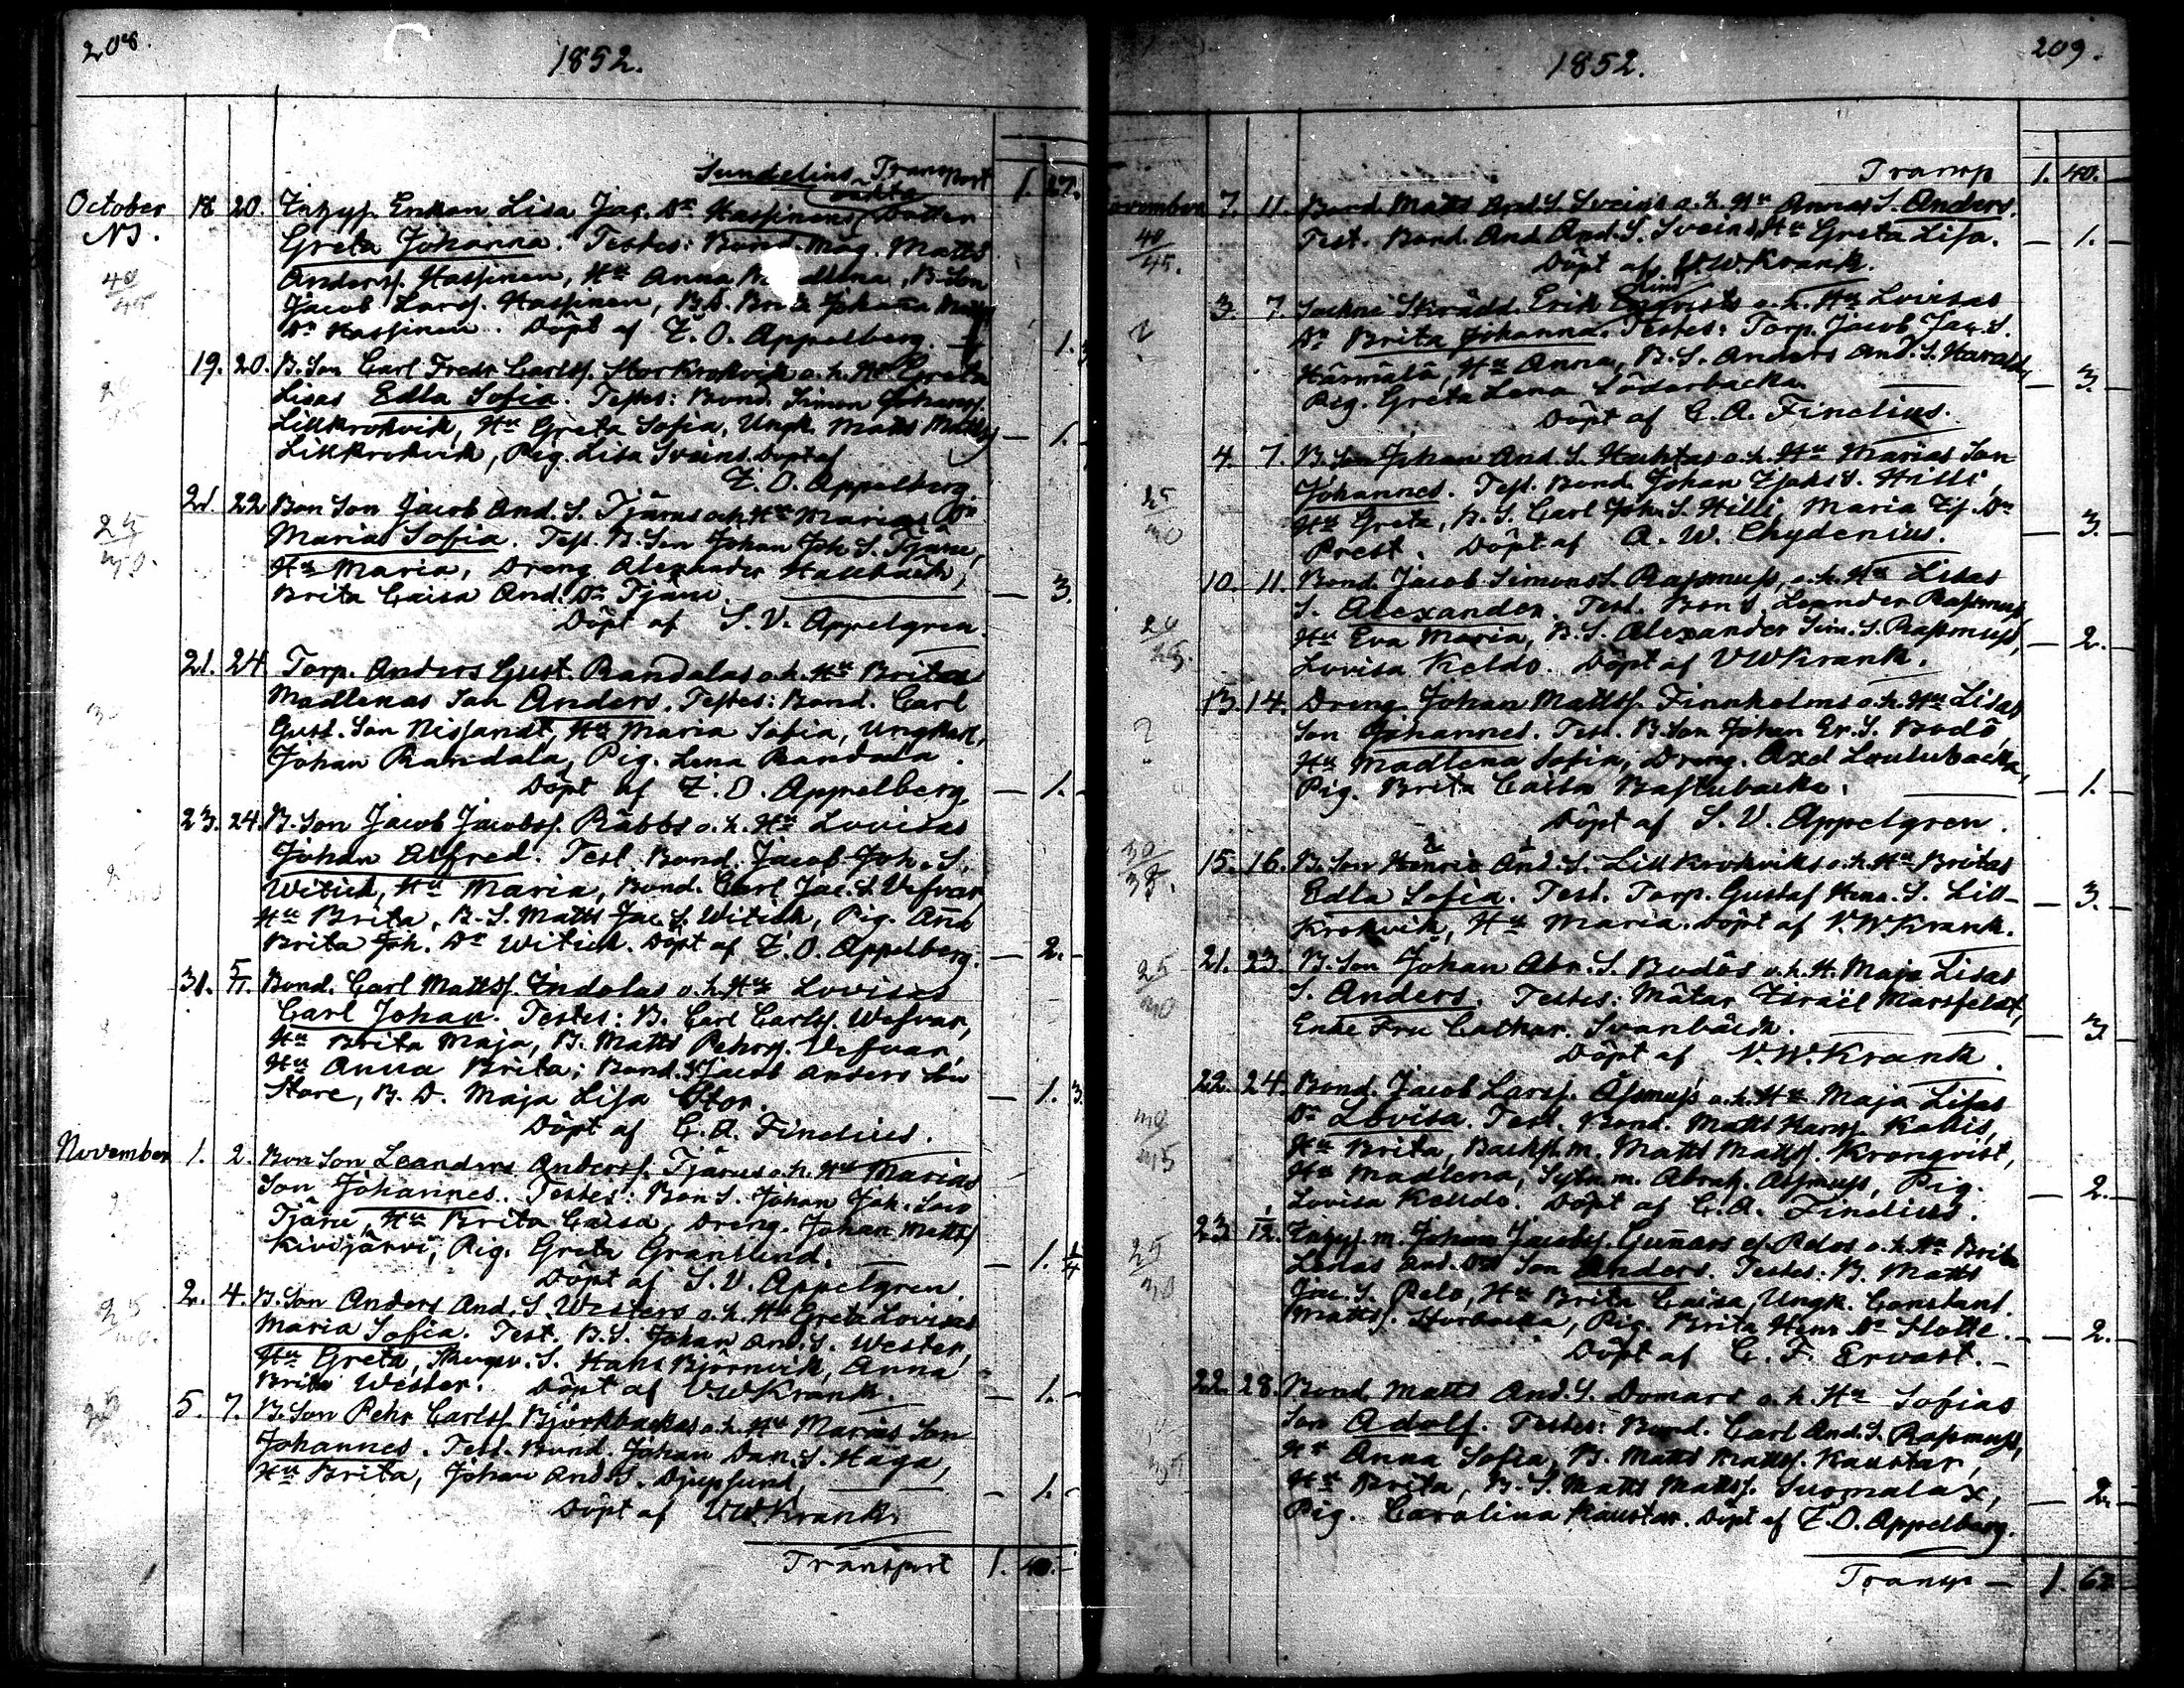 208.
1852.
Sundelius Transport 1. 27.
äkta
October 18 20. Inhys. Enkan Lisa Jac. Dr Hassinens Dotter
NB. Greta Johanna. Testes: Bond. Mag. Matts
40/45 Anderss. Hassinen, Hu Anna Madlena, B. Son
Jacob Larss. Hassinen, B.D. Brita Johana Matts
Dr Hassinen. Döpt af Z. O. Appelberg. 1.
19. 20. B. Son Carl Fredr Carlss. Storkrokvik o. h. Hu Greta
Lisas Edla Sofia. Testes: Bond. Simon Johanss.
Lillkrokvik, Hu Greta Sofia, Ungk. Matts Mattss — 1. -
Lillkrokvik, Pig. Lisa Sveins. Döpt af
Z. O. Appelberg.
21. 22 Bon Son Jacob And. S. Tjärus o. h. Hu Marias Dr
25/30. Maria Sofia. Test. B. Son Johan Joh. S. Tjäru,
Hu Maria, Dreng Alexander Hallbäck,
Brita Caisa And. Dr Tjäru. — 3.
Döpt af S. V. Appelgren.
21. 24. Torp. Anders Gust. Randalas o. h. Hu Brita
Madlenas Son Anders. Testes: Bond. Carl
Gust. Son Nissander, Hu Maria Sofia, Ungkarl,
Johan Randala, Pig. Lena Randala.
Döpt af Z. O. Appelberg. — 1. -
23. 24. B. Son Jacob Jacobss. Räbbs o. h. Hu Lovisas
Johan Alfred. Test. Bond. Jacob Joh. S.
Witick, Hu Maria, Bond. Carl Jac. S. Vefvar,
Hu Brita, B. S. Matts Jac. S. Witick, Pig. Ana
Brita Joh. Dr Witick. Döpt af Z. O. Appelberg. — 2. -
31. 5/11. Bond. Carl Mattss. Indolas o. h. Hu Lovisas
Carl Johan. Testes: B. Carl Carlss. Wefvar,
Hu Brita Maja, B. Matts Pehrss. Vefvar,
Hu Anna Brita; Bond. S. Jacob Anders Son
Store, B. D. Maja Lisa Stor. — 1. 3.
Döpt af C. A. Finelius.
November 1. 2. Bon Son Leanders Anderss. Tjärus o. h. Hu Marias
Son Johannes. Testes: Bon S. Johan Joh. Son
Tjäru, Hu Brita Caisa, Dreng. Johan Mattss
Kivijärvi, Pig. Greta Granlund. — 1. 1/4
Döpt af S. V. Appelgren.
2. 4. B. Son Anders And. S. Westers o. h. Hu Greta Lovisas
25/30. Maria Sofia. Test. B. S. Johan And. S. Wester,
Hu Greta, S. Hans Björnvik, Anna
Brita Wester. Döpt af VWKrank. — 1. -
5. 7. B. Son Pehr Carlss. Björkbackas o. h. Hu Marias Son
Johannes. Test. Bond. Johan Dan. S. Haga,
Hu Brita, Johan And. S. Djupsund, — 1. -
Döpt af VWKrank.
Transport 1. 40. -
209.
1852.
Transp 1. 40. -
November 7. 11. Bond. Matts And. S. Sveins o. h. Hu Annas S. Anders.
40/45. Test. Bond. And. And. S. Sveins, Hu Greta Lisa. — 1. -
Döpt af VWKrank.
3. 7. Sockne Skrädd. Erik Lindqvists o. h. Hu Lovisas
? Dr Brita Johanna. Testes: Torp. Jacob Jac. S.
Härmälä, Hu Anna, B. S. Anders And. S. Harald,
Pig. Greta Lena Söderbacka. — 3. -
Döpt af C. A. Finelius.
4. 7. B. Son Johan And. S. Huhtas o. h. Hu Marias Son
25/30 Johannes. Test. Bond. Johan Isaks S. Hilli,
Hu Greta, B. S. Carl Joh. S. Hilli, Maria Isr. Dr
Prest. Döpt af A. W. Chydenius. — 3. -
10. 11. Bond. Jacob Simons S. Rasmuss, o. h. Hu Lisas
20/25. S. Alexander. Test. Bon S. Leander Rasmuss,
Hu Eva Maria, B. S. Alexander Sim. S. Rasmuss, — 2. -
Lovisa Keldo. Döpt af VWKrank.
13. 14. Dreng Johan Mattss. Finnholms o. h. Hu Lisas
? Son Johannes. Test. B. Son Johan Er. S. Bodö,
Hu Madlena Sofia, Dreng. Axel Laulubacka,
Pig. Brita Caisa Bastubacka. — 1. -
Döpt af S. V. Appelgren.
30/35. 15. 16. B. Son Henric And. S. Lillkrokviks o. h. Hu Britas
Edla Sofia. Test. Torp. Gustaf Henr. S. Lill- — 3. -
krokvik, Hu Maria. Döpt af V. W. Krank.
25/30 21. 23. B. Son Johan Abr. S. Bodös o. h. H. Maja Lisas
S. Anders. Testes: Mätar Israël Marsfeldt,
Enke Fru Cathar. Svanbäck. — 3
Döpt af V. W. Krank.
22. 24. Bond. Jacob Larss. Åsmuss o. h. Hu Maja Lisas
Dr Lovisa. Test. Bond. Matts Hanss. Kallis,
Hu Brita, Backst.m. Matts Mattss. Kronqvist,
Hu Madlena, Sytn.m. Abrah. Åsmuss, Pig.
Lovisa Kelldo. Döpt af C. A. Finelius. — 2. -
23. 1/12. Inhys.m. Johan Jacobss. Gunnars el. Pelos o. h. Hu Brita
25/30 Lenas And. Dr Son Anders. Testes: B. Matts
Jac. S. Pelo, Hu Brita Caisa, Ungk. Constant.
Mattss. Storbacka, Pig. Brita Henr. Dr Slotte. — 2. -
Döpt af C. F. Ervast. -
22. 28. Bond. Matts And. S. Domars o. h. Hu Sofias
Son Adolf. Testes: Bond. Carl And. S. Rasmuss,
Hu Anna Sofia, B. Matts Mattss. Kaustar,
Hu Brita, B. S. Matts Mattss. Suomalax, — 2. -
Pig. Carolina Kaustar. Döpt af Z. O. Appelberg.
Transp — 1. 62